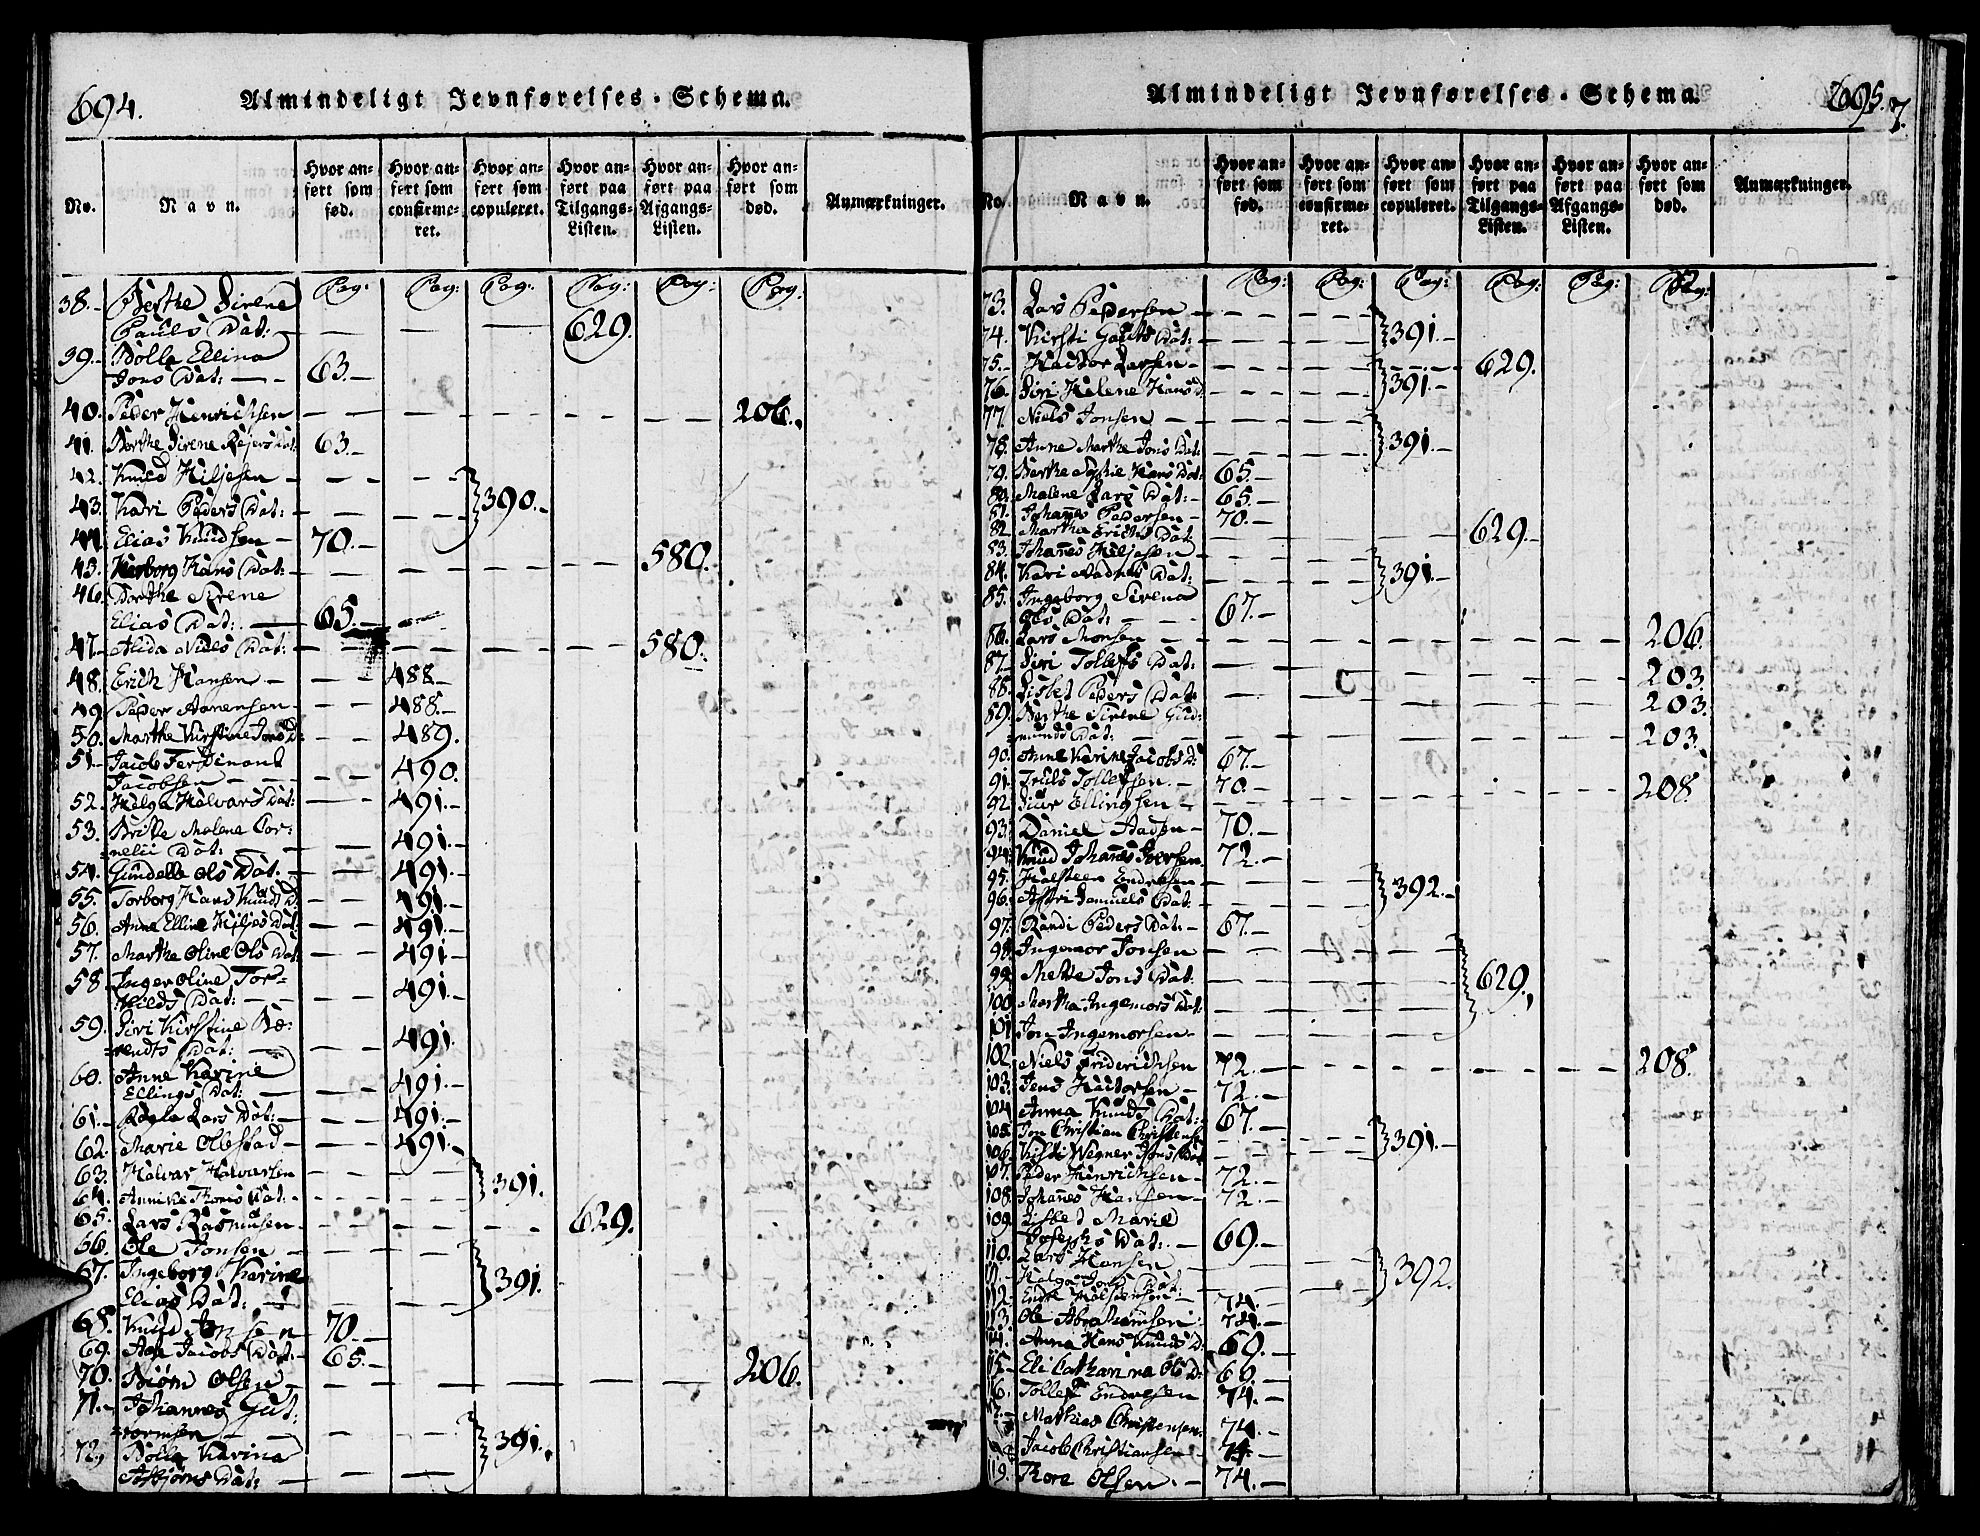 694.
Almindeligt Jevnførelses-Schema.
No.
Navn.
Hvor anført som fød.
Hvor anført som confirmeret.
Hvor anført som copuleret.
Hvor anført paa Tilgangs-Listen.
Hvor anført paa Afgangs-Listen.
Hvor anført som død.
Anmærkninger.
Pag: Pag: Pag: Pag: Pag: Pag:
38. Berthe Sirene
Pauls Dat: — — — — 629.
39. Bolla Ellina
Jons Dat: — 63.
40. Peder Henrichsen — — — — — 206.
41. Berthe Sirene Rejers Dat: 63.
42. Knud Hiljesen — — —
43. Kari Peders Dat: — — 390.
44. Elias Knudsen — 70.
45. Herborg Hans Dat: — — — — 580.
46. Dorthe Sirene
Elias Dat: — 65.
47. Alida Niels Dat: — — — — 580.
48. Erich Hansen — — 488.
49. Peder Aanensen — — 488.
50. Marthe Kirstine Jons D: — 489.
51. Jacob Ferdinant
Jacobsen — — 490.
52. Helga Halvars Dat: — 491.
53. Britte Malene Cor:
nelii Dat: — — 491.
54. Gundelle Ols Dat: — 491.
55. Torborg Hans Knuds D: — 491.
56. Anne Elline Hiljes Dat: 491.
57. Marthe Oline Ols Dat: 491.
58. Inger Oline Tor-
kilds Dat: — — 491.
59. Siri Kirstine Be:
rendts Dat: — — 491.
60. Anne Karine
Ellings Dat: — — 491.
61. Ragla Lars Dat: — 491.
62. Marie Olestad — 491.
63. Halvar Halvarsen — —
64. Annike Thores Dat: — — 391.
65. Lars Rasmusen — — — 629.
66. Ole Jonsen — —
67. Ingeborg Karine
Elias Dat: — — 391.
68. Knud Jonsen 70.
69. Jacobs Dat: 65.
70. Biørn Olsen — — — — — 206.
71. Johannes Gut:
tormsen — —
72. Bolla Karina
Asbjørns Dat: — — 391.
695.
7.
Almindeligt Jevnførelses-Schema.
No.
Navn.
Hvor anført som fød.
Hvor anført som confirmeret.
Hvor anført som copuleret.
Hvor anført paa Tilgangs-Listen.
Hvor anført paa Afgangs-Listen.
Hvor anført som død.
Anmærkninger.
Pag: Pag: Pag: Pag: Pag: Pag:
73. Lars Pedersen — — —
74. Kirsti Gauts Dat: — — 391.
75. Hactor Larsen — — — 629.
76. Siri Helene Hans D. — — 391.
77. Niels Jonsen — — —
78. Anne Marthe Jons Dat: — 391.
79. Berthe Sophie Hans Dat: 65.
80. Malene Lars Dat: — 65.
81. Johanes Pedersen — 70.
82. Martha Erichs Dat — — — 629.
83. Johanes Hiljesen — —
84. Kari Aadnes Dat: — — 391.
85. Ingeborg Sirena
Ols Dat: — 67.
86. Lars Monsen — — — — — 206.
87. Siri Tollefs Dat: — — — — — 203.
88. Lisbet Peders Dat: — — — — — 203.
89. Berthe Sirene Gud:
munds Dat: — — — — — 203.
90. Anne Karine Jacobs D: 67.
91. Truls Tollefsen. — 70.
92. Siur Ellingsen — — — — — 208.
93. Daniel Aadsen — 70.
94. Knud Johanes Iversen 72.
95. Halsteen Endresen — —
96. Astri Samuels Dat: — — 392.
97. Randi Peders Dat: — 67.
98. Ingemor Jonsen — — —
99. Mette Jons Dat: — — — 629.
100. Martha Ingemors Dat: — — —
101. Jon Ingemorsen — — —
102. Niels Friderichsen 72. — — — — 208.
103. Jens Hactorsen — 72.
104. Anna Knuds Dat: 67.
105. Jon Christian Christens — —
106. Kisti Wegner Jons Dat — — 391.
107. Peder Henrichsen — 72.
108. Johanes Hansen — 72.
109. Lisbet Marie
Josephs Dat: — 69.
110. Lars Hansen — —
111. Helga Jons Dat: — — 392.
112. Endre Halsteensen — 74.
113. Ole Abrahamsen 74.
114. Anna Hans Knuds D: 69.
115. Eli Catharina Ols D: 69.
116. Tollef Endresen 74.
117. Mathias Christensen 74.
118. Jacob Christiansen 74.
119. Thore Olsen. — 74.